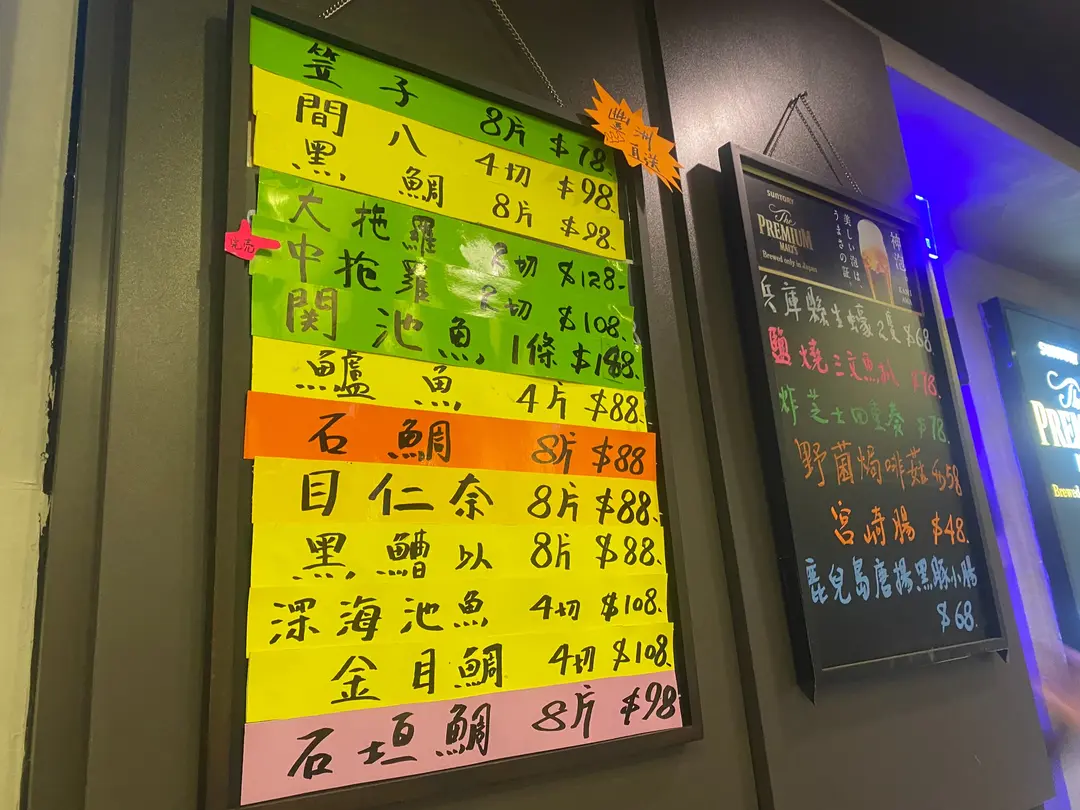 笠子 8片 $78.
間八 4切 $98.
黑鯛 8片 $98.
大拖羅 2切 $128.
中拖羅 2切 $108.
関池魚 1條 $188.
鱸魚 4片 $88.
石鯛 8片 $88
目仁奈 8片 $88.
黑鰽以 8片 $88.
深海池魚 4切 $108.
金目鯛 4切 $108.
石垣鯛 8片 $98
豐洲
直送
SUNTORY
The
PREMIUM
MALT'S
Brewed only in Japan
美しい泡は、
うまさの証。
神泡
兵庫縣生蠔2隻 $68.
鹽燒三文魚扒 $78.
炸芝士田里奏 $78.
野菌焗啡菇 $58
宮崎腸 $48.
鹿兒島唐揚黑豚小腸
$68.
SUNTORY
The
Brewed